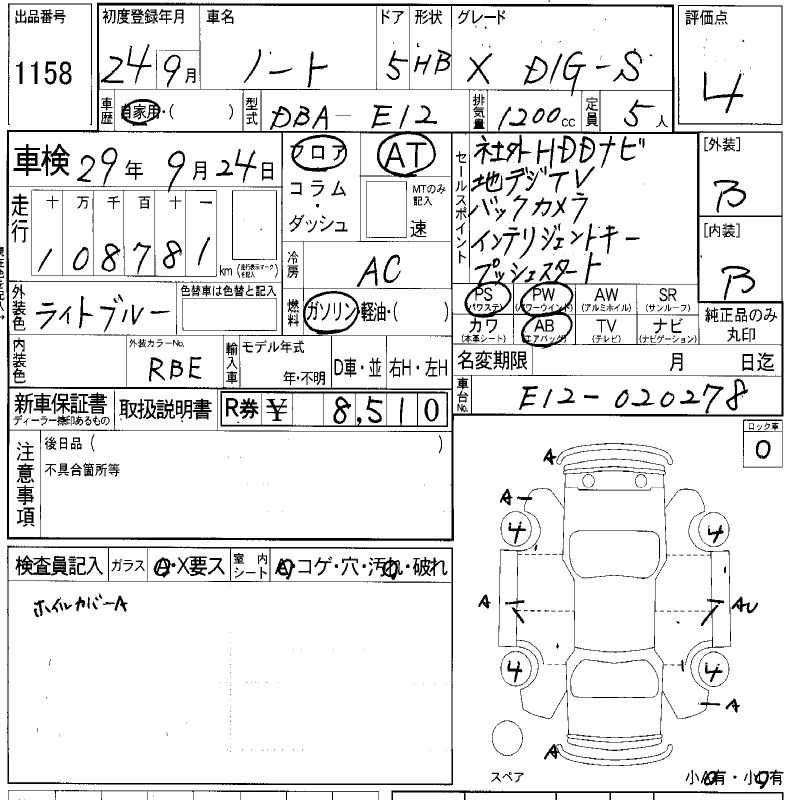 出品番号 初度登録年月 車名 ドア 形状 グレード 評価点
1158 24年9月 ノート 5 HB X DIG-S 4
車歴 自家用・( ) 型式 DBA-E12 排気量 1200cc 定員 5人
車検 29年9月24日
フロア AT
コラム・ダッシュ MTのみ記入 速
セールスポイント
社外HDDナビ
地デジTV
バックカメラ
インテリジェントキー
プッシュスタート
[外装]
B
[内装]
B
走行 十 万 千 百 十 一
1 0 8 7 8 1 km (走行表示マークを記入)
冷房 AC
外装色 ライトブルー 色替車は色替と記入
燃料 ガソリン・軽油・( )
PS (パワステ) PW (パワーウインド) AW (アルミホイル) SR (サンルーフ)
カワ (本革シート) AB (エアバッグ) TV (テレビ) ナビ (ナビゲーション)
純正品のみ丸印
内装色 外装カラーNo. RBE 輸入車 モデル年式 年・不明 D車・並 右H・左H
名変期限 月 日迄
新車保証書 ディーラー捺印あるもの 取扱説明書 R券 ¥ 8,510
車台No. E12-020278
注意事項 後日品( )
不具合箇所等
ロック車
0
検査員記入 ガラス A・X要ス 室内シート A・コゲ・穴・汚れ・破れ
ホイルカバーA
A
A
4 4
A AU
4 4
A
A
スペア 小A有・小U有